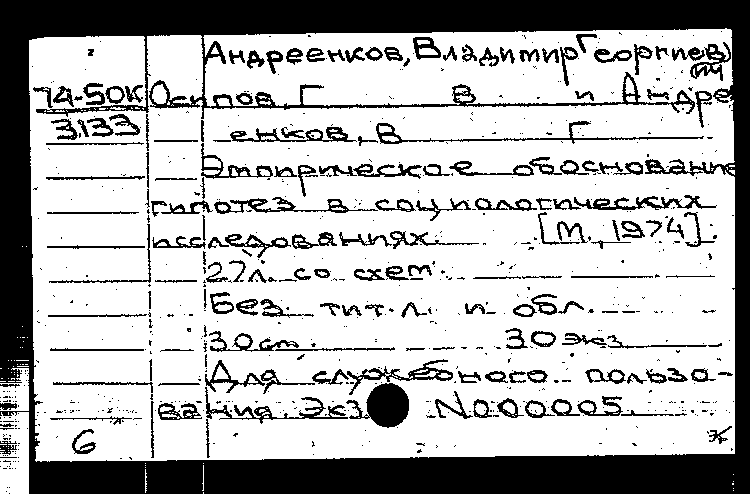 Андреенков, Владимир Георгиев
ич
74-50к Осипов, Г В и Андре
3133 енков, В Г
Эмпирическое обоснование
гипотез в социологических
исследованиях. [М., 1974].
27л. со схем.
Без тит.л. и обл.
30 см. 30 экз
Для служебного пользо-
вания. Экз N000005.
6